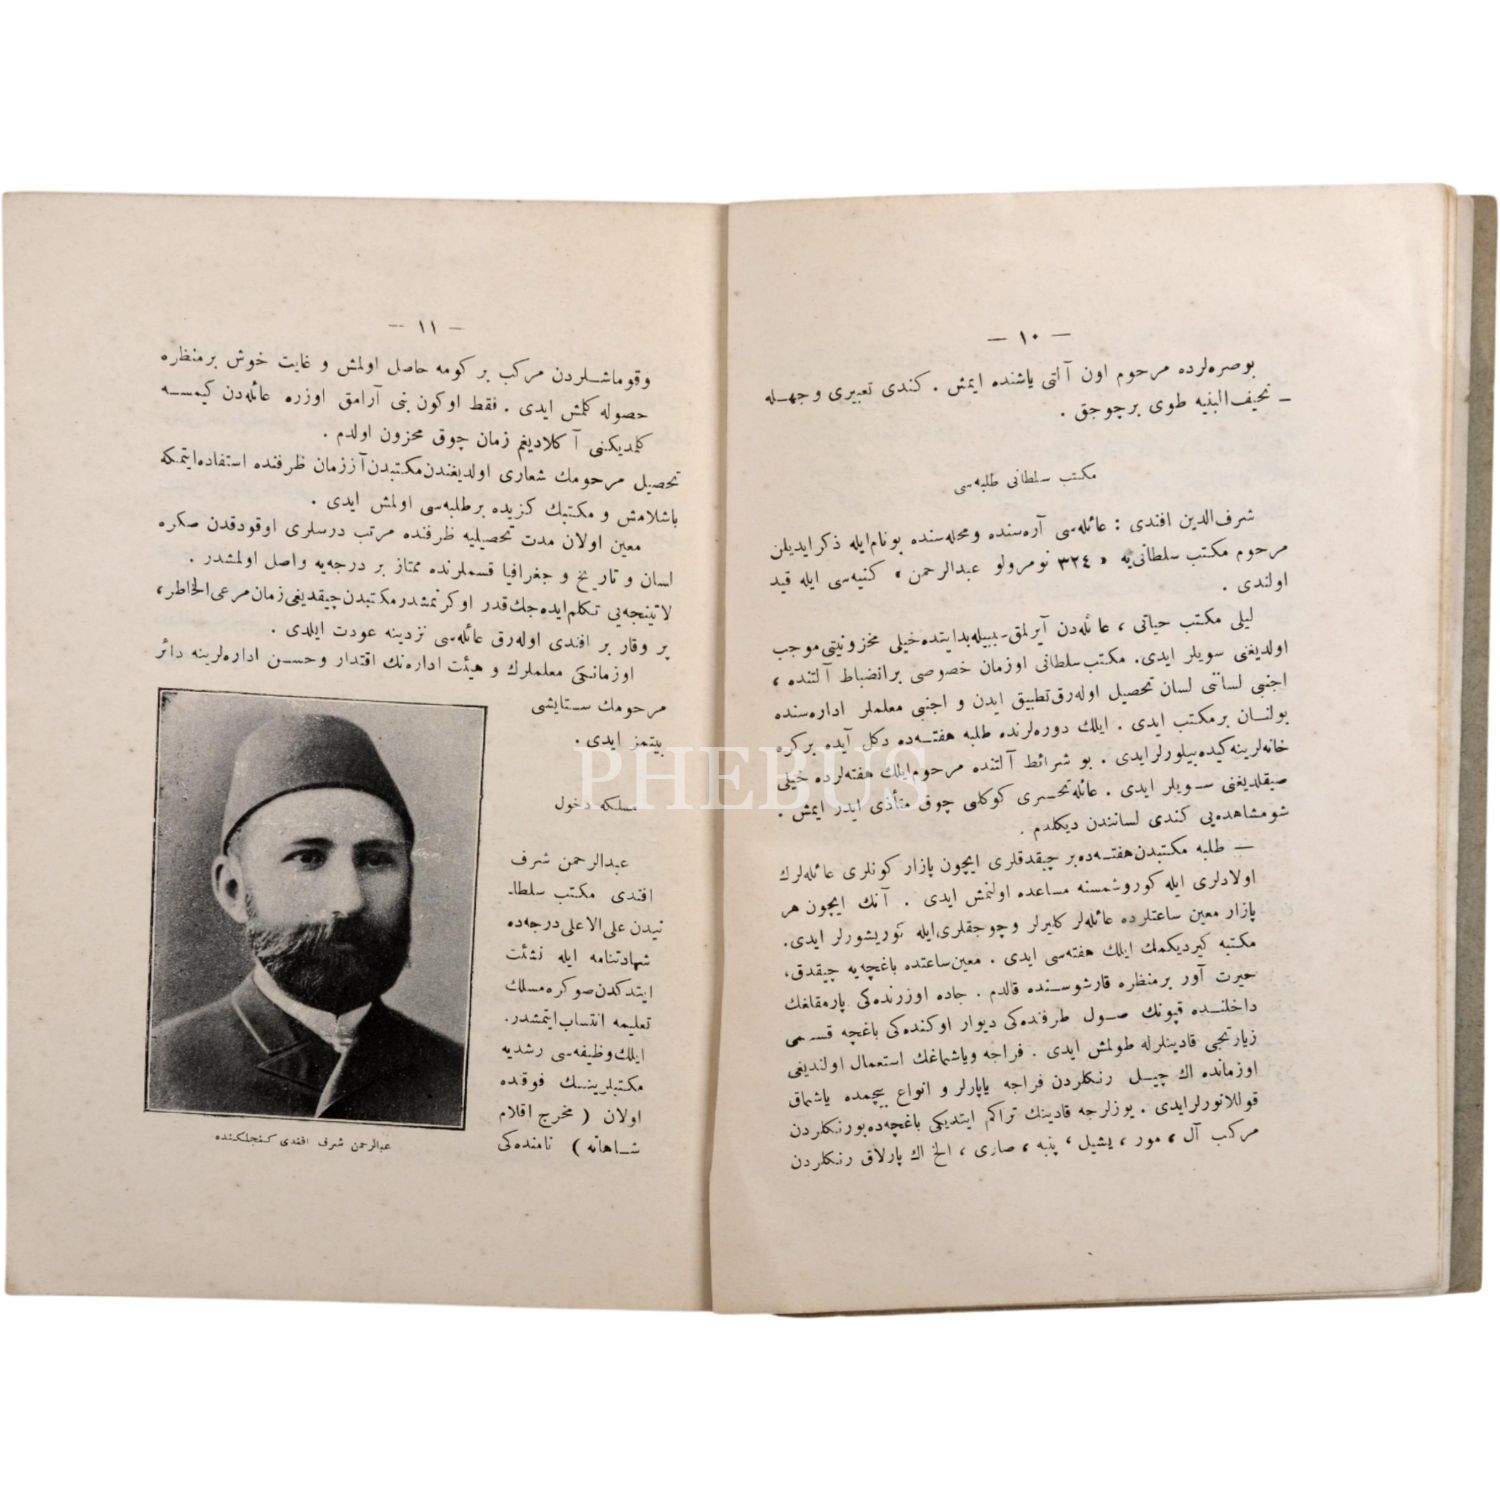 — ١٠ —
بوصره‌لرده مرحوم اون آلتی یاشنده ایمش . کندی تعبیری وجهله
ـ نحیف‌البنیه طوی برچوجق .
مکتب سلطانی طلبه‌سی
شرف‌الدین افندی : عائله‌سی آره‌سنده و محله‌سنده بونام‌ایله ذکرایدیلن
مرحوم مکتب سلطانی‌یه « ٣٢٤ نومرولو عبدالرحمن » کنیه‌سی ایله قید
اولندی .
لیلی مکتب حیاتی ، عائله‌دن آیرلمق ـ بدایتده خیلی محزونیتی موجب
اولدیغنی سویلر ایدی. مکتب سلطانی اوزمان خصوصی برانضباط آلتنده ،
اجنبی لسانی لسان تحصیل اوله‌رق تطبیق ایدن و اجنبی معلملر اداره‌سنده
بولنان برمکتب ایدی . ایلك دوره‌لرنده طلبه هفته‌ده دکل آیده برکره
خانه‌لرینه کیده‌بیلورلرایدی . بو شرائط آلتنده مرحوم ایلك هفته‌لرده خیلی
صیقلدیغنی سویلر ایدی . عائله تحسری کوکلی چوق متأذی ایدر ایمش .
شو مشاهده‌یی کندی لسانندن دیکلدم .
— طلبه مکتبدن هفته‌ده بر چیقدقلری ایچون پازار کونلری عائله‌لرك
اولادلری ایله کوروشمسنه مساعده اولنمش ایدی . آنك ایچون هر
پازار معین ساعتلرده عائله‌لر کلیرلر و چوجقلری‌ایله کوریشورلر ایدی.
مکتبه کیردیکمك ایلك هفته‌سی ایدی . معین ساعتده باغچه‌یه چیقدق،
حیرت آور برمنظره قارشوسنده قالدم . جاده اوزرنده‌کی پارمقلغك
داخلنده قپونك صول طرفنده‌کی دیوار اوکنده‌کی باغچه قسمی
زیارتجی قادینلرله طولمش ایدی . فراجه ویاشماغك استعمال اولندیغی
اوزمانده اك چیل رنکلردن فراجه یاپارلر و انواع بیچمده یاشماق
قوللانورلرایدی . یوزلرجه قادینك تراکم ایتدیکی باغچه‌ده بورنکلردن
مرکب آل ، مور ، یشیل ، پنبه ، صاری ، الخ اك پارلاق رنکلردن
— ١١ —
وقوماشلردن مرکب بر کومه حاصل اولمش و غایت خوش برمنظره
حصوله کلمش ایدی . فقط اوکون بنی آرامق اوزره عائله‌دن کیمسه
کلمدیکنی آکلادیغم زمان چوق محزون اولدم .
تحصیل مرحومك شعاری اولدیغندن مکتبدن آززمان ظرفنده استفاده‌ایتمکه
باشلامش و مکتبك کزیده برطلبه‌سی اولمش ایدی .
معین اولان مدت تحصیلیه ظرفنده مرتب درسلری اوقودقدن صکره
لسان و تاریخ و جغرافیا قسملرنده ممتاز بر درجه‌یه واصل اولمشدر .
لاتینجه‌یی تکلم‌ایده‌جك‌قدر اوکرنمشدر مکتبدن چیقدیغی زمان مرعی‌الخاطر،
پر وقار بر افندی اوله‌رق عائله‌سی نزدینه عودت ایلدی .
اوزمانکی معلملرك و هیئت اداره‌نك اقتدار وحسن اداره‌لرینه دائر
مرحومك ستایشی
بیتمز ایدی .
مسلکه دخول
عبدالرحمن شرف
افندی مکتب سلطا-
نیدن علی‌الاعلی درجه‌ده
شهادتنامه ایله نشئت
ایتدکدن صوکره مسلك
تعلیمه انتساب ایتمشدر.
ایلك وظیفه‌سی رشدیه
مکتبلرینك فوقنده
اولان ( مخرج اقلام
شاهانه ) نامنده‌کی
عبدالرحمن شرف افندی کنجلکنده
PHEBUS